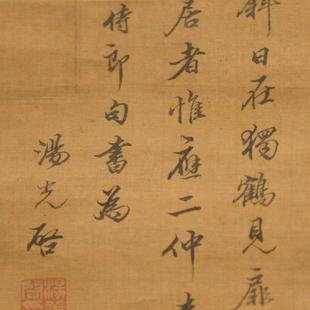 斜日在獨鶴見
居者惟應二仲
侍郎句書為
湯光啓